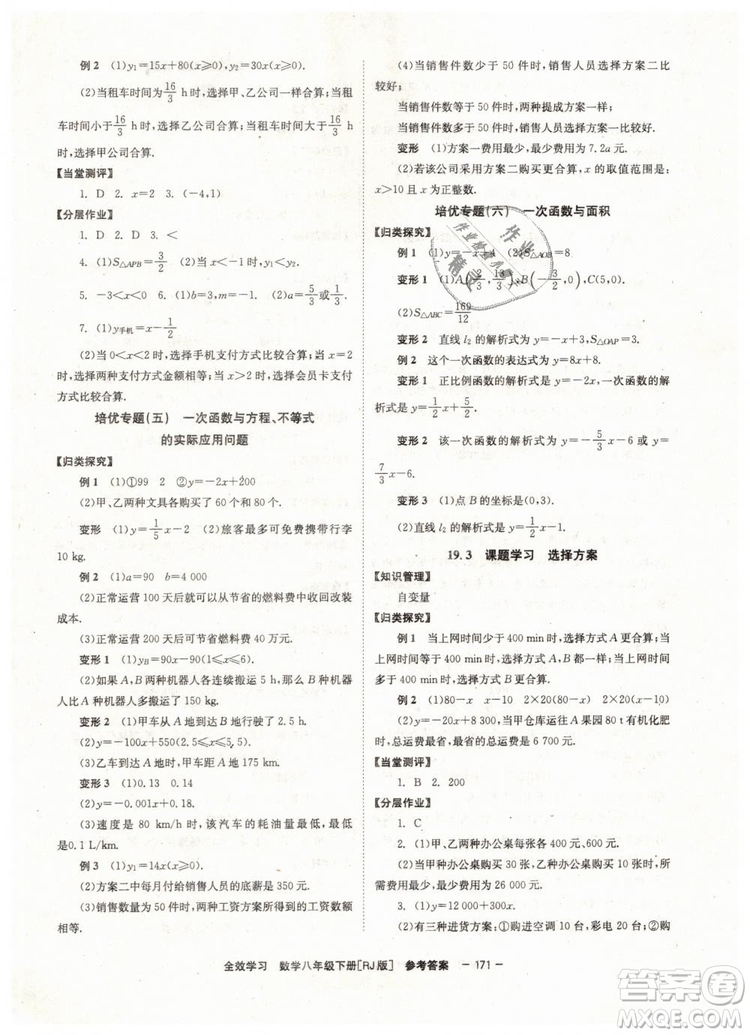 例2 (1)y₁=15x+80(x≥0),y₂=30x(x≥0).
(2)当租车时间为16/3 h时,选择甲、乙公司一样;当租
车时间小于16/3 h时,选择乙公司合算;当租车时间大于16/3 h
时,选择甲公司合算.
【当堂测评】
1. D 2. x=2 3. (-4,1)
【分层作业】
1. D 2. D 3. <
4. (1)S△APB=3/2 (2)x<-1时,y₁>y₂.
5. -3<x<0 6. (1)b=3 m=1 (2)a=5/3或1/3
7. (1)y手机=x-1/2
(2)当0<x<2时,选择手机支付方式比较合算;当x=2
时,两种支付方式金额相等;当x>2时,选择会员卡支付方
式比较合算.
培优专题(五) 一次函数与方程、不等式
的实际应用问题
【归类探究】
例1 (1)①99 2 ②y=-2x+200
(2)甲、乙两种文具各购买了60个和80个.
变形 (1)y=1/5x-2 (2)旅客最多可免费携带行李
10 kg.
例2 (1)a=90 b=4 000
(2)正常运营100天后可以从节省的燃料费中收回改装
成本.
(3)正常运营200天后共可节省燃料费40万元.
变形1 (1)yB=90x-90(1≤x≤6).
(2)如果A,B两种机器人各连续搬运5 h,那么B种机器
人比A种机器人多搬运了150 kg.
变形2 (1)甲车从A地到B地行驶了2.5 h.
(2)y=-100x+550(2.5≤x≤5.5).
(3)乙车到达A地时,甲车距离A地175 km.
变形3 (1)0.13 0.14
(2)y=-0.001x+0.18.
(3)速度是80 km/h时,该汽车的耗油量最低,最低是
0.1 L/km.
例3 (1)y₁=14x(x≥0).
(2)方案二中每月付给销售人员的底薪为350元.
(3)销售数量为50件时,两种工资方案所得到的工资数
额相等.
(4)当销售件数少于50件时,销售人员选择方案二比
较好;
当销售件数等于50件时,两种提成方案一样;
当销售件数多于50件时,销售人员选择方案一比较好.
变形 (1)方案一费用最少,最少费用为7.2a元.
(2)若该公司采用方案二购买更合算,x的取值范围是
x>10且x为正整数.
培优专题(六) 一次函数与面积
【归类探究】
(2)S△AOB=8
变形1
C(5,0).
(2)S△ABC=169/12
变形2 直线l₂的解析式为y=-x,S△OAP=4.
例2 这个一次函数的表达式为y=8x+8.
变形1 正比例函数的解析式为y=-x,一次函数的解
析式为y=1/2x+3.
变形2 该一次函数的解析式为y=-5/3x-6或y=
7/3x-6.
变形3 (1)点B的坐标是(0,3).
(2)直线l₂的解析式是y=1/2x-1.
19.3 课题学习 选择方案
【知识管理】
自变量
【归类探究】
例1 当上网时间少于400 min时,选择方式A更合算;当
上网时间等于400 min时,选择方式A,B都一样;当上网时间
多于400 min时,选择方式B更合算.
例2 (1)80-x x-10 2×20(80-x) 2×20(x-10)
(2)y=-20x+8 300,当甲仓库运往A果园80 t有机化肥
时,总运费最省,总运费最省是6 700元.
【当堂测评】
1. B 2. 200
【分层作业】
1. C
2. (1)甲、乙两种办公桌每张各400元,600元.
(2)当甲种办公桌购买30张,乙种办公桌购买10张时,
花费最少,最少费用为26 000元.
3. (1)有三种进货方案:①购进空调10台,彩电20台;②购
全效学习 数学八年级下册[RJ版] 参考答案 -171-
作业
精灵